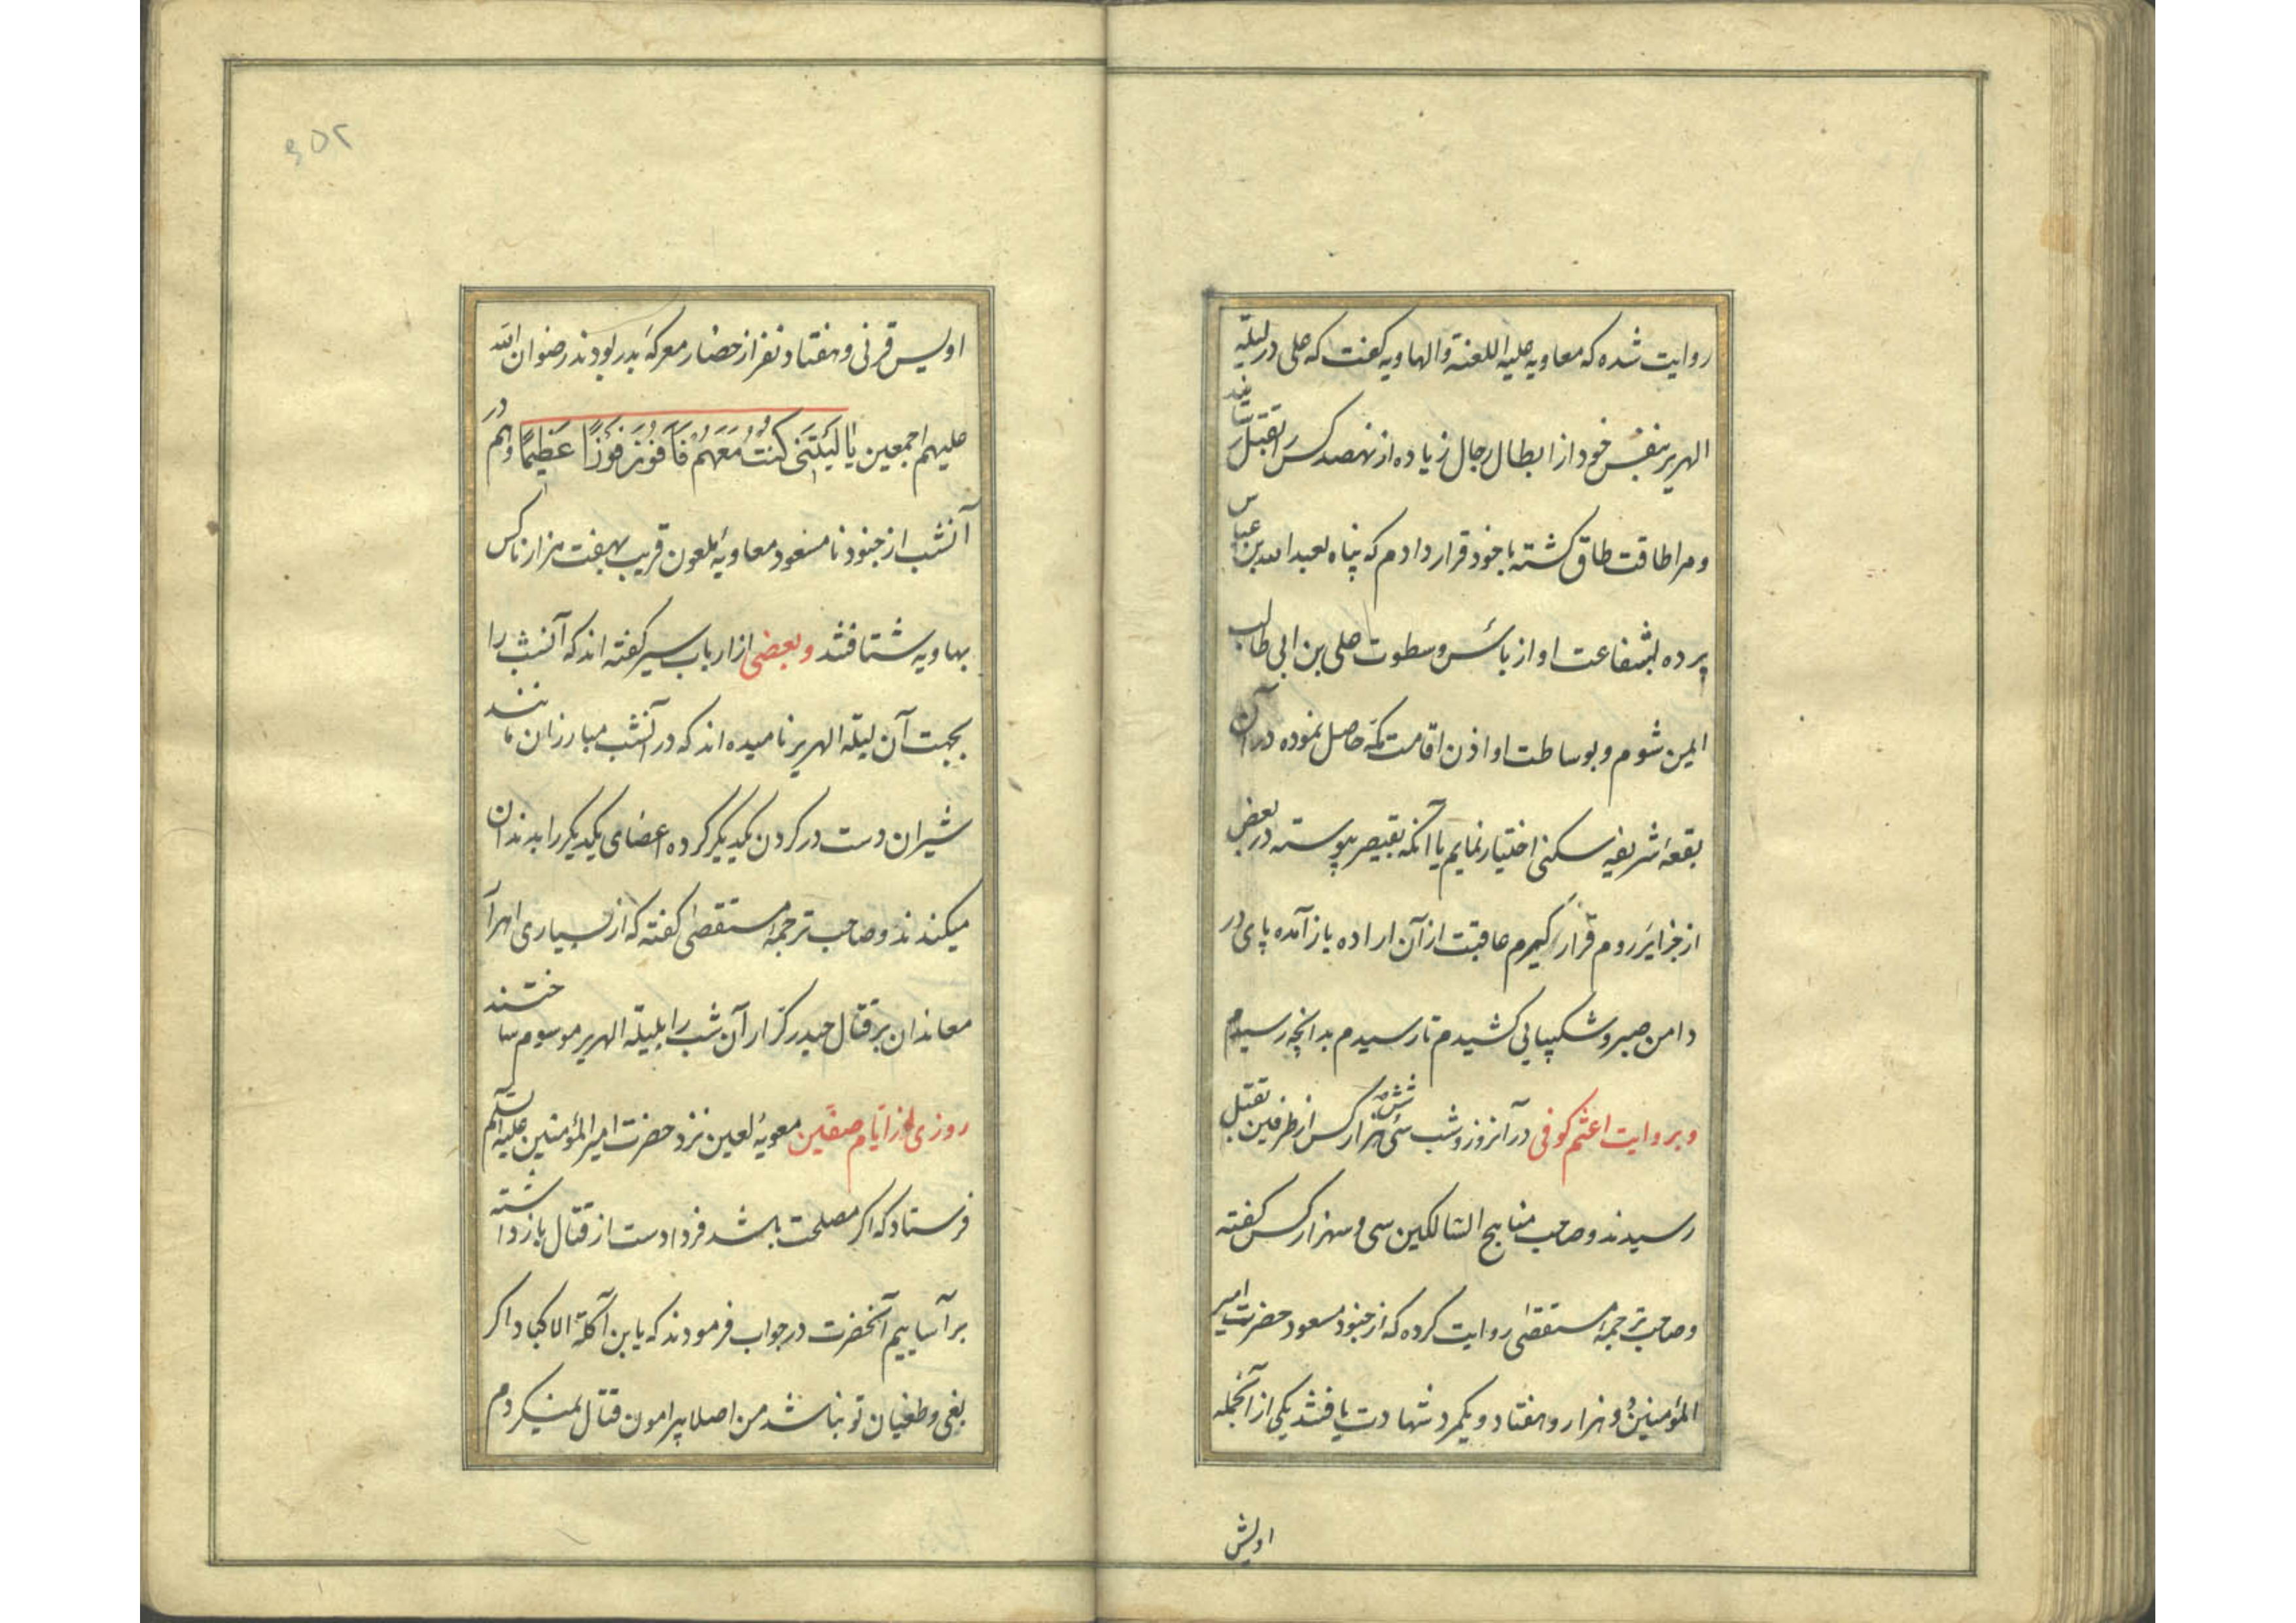 روایت شده که معاویه علیه اللعنة والهاویه گفت که علی در لیلة
الهریر بنفس خود از ابطال رجال زیاده از نهصد کس را بقتل رسانید
و مرا طاقت طاق گشته با خود قرار دادم که پناه بعبد الله بن عباس
برده بشفاعت او از بأس و سطوت علی بن ابی طالب
ایمن شوم و بوساطت او اذن اقامت مکه حاصل نموده در آن
بقعه شریفه سکنی اختیار نمایم یا آنکه بقیصر پیوسته در بعض
از جزایر روم قرار گیرم عاقبت از آن اراده باز آمده پای در
دامن صبر و شکیبایی کشیدم تا رسیدم بدانچه رسیدم
و بروایت اعثم کوفی در آنروز و شب سی و شش هزار کس از طرفین بقتل
رسیدند و صاحب مناهج السالکین سی و سهزار کس گفته
و صاحب ترجمهٔ مستقصی روایت کرده که از جنود مسعود حضرت امیر
المؤمنین دو هزار و هفتاد و یکمرد شهادت یافتند یکی از آنجمله
اویس
۲۵۶
اویس قرنی و هفتاد نفر از حضار معرکهٔ بدر بودند رضوان الله
علیهم اجمعین یا لَیْتَنی کُنْتُ مَعَهُمْ فَاَفوُزَ فَوْزاً عَظیماً و هم در
آنشب از جنود نامسعود معاویهٔ ملعون قریب بهفت هزار ناکس
بهاویه شتافتند و بعضی از ارباب سیر گفته اند که آنشب را
بجهت آن لیلة الهریر نامیده اند که در آنشب مبارزان مانند
شیران دست در گردن یکدیگر کرده اعضای یکدیگر را بدندان
میکندند و صاحب ترجمهٔ مستقصی گفته که از بسیاری اهرآ
معاندان بر قتال حیدر کرّار آن شب را بلیلة الهریر موسوم ساختند
روزی از ایّام صفّین معویهٔ لعین نزد حضرت امیر المؤمنین علیه السلم
فرستاد که اگر مصلحت باشد فردا دست از قتال باز داشته
برآساییم آنحضرت در جواب فرمودند که یابن آکلة الاکباد اگر
بغی و طغیان تو نباشد من اصلا پیرامون قتال نمیگردم